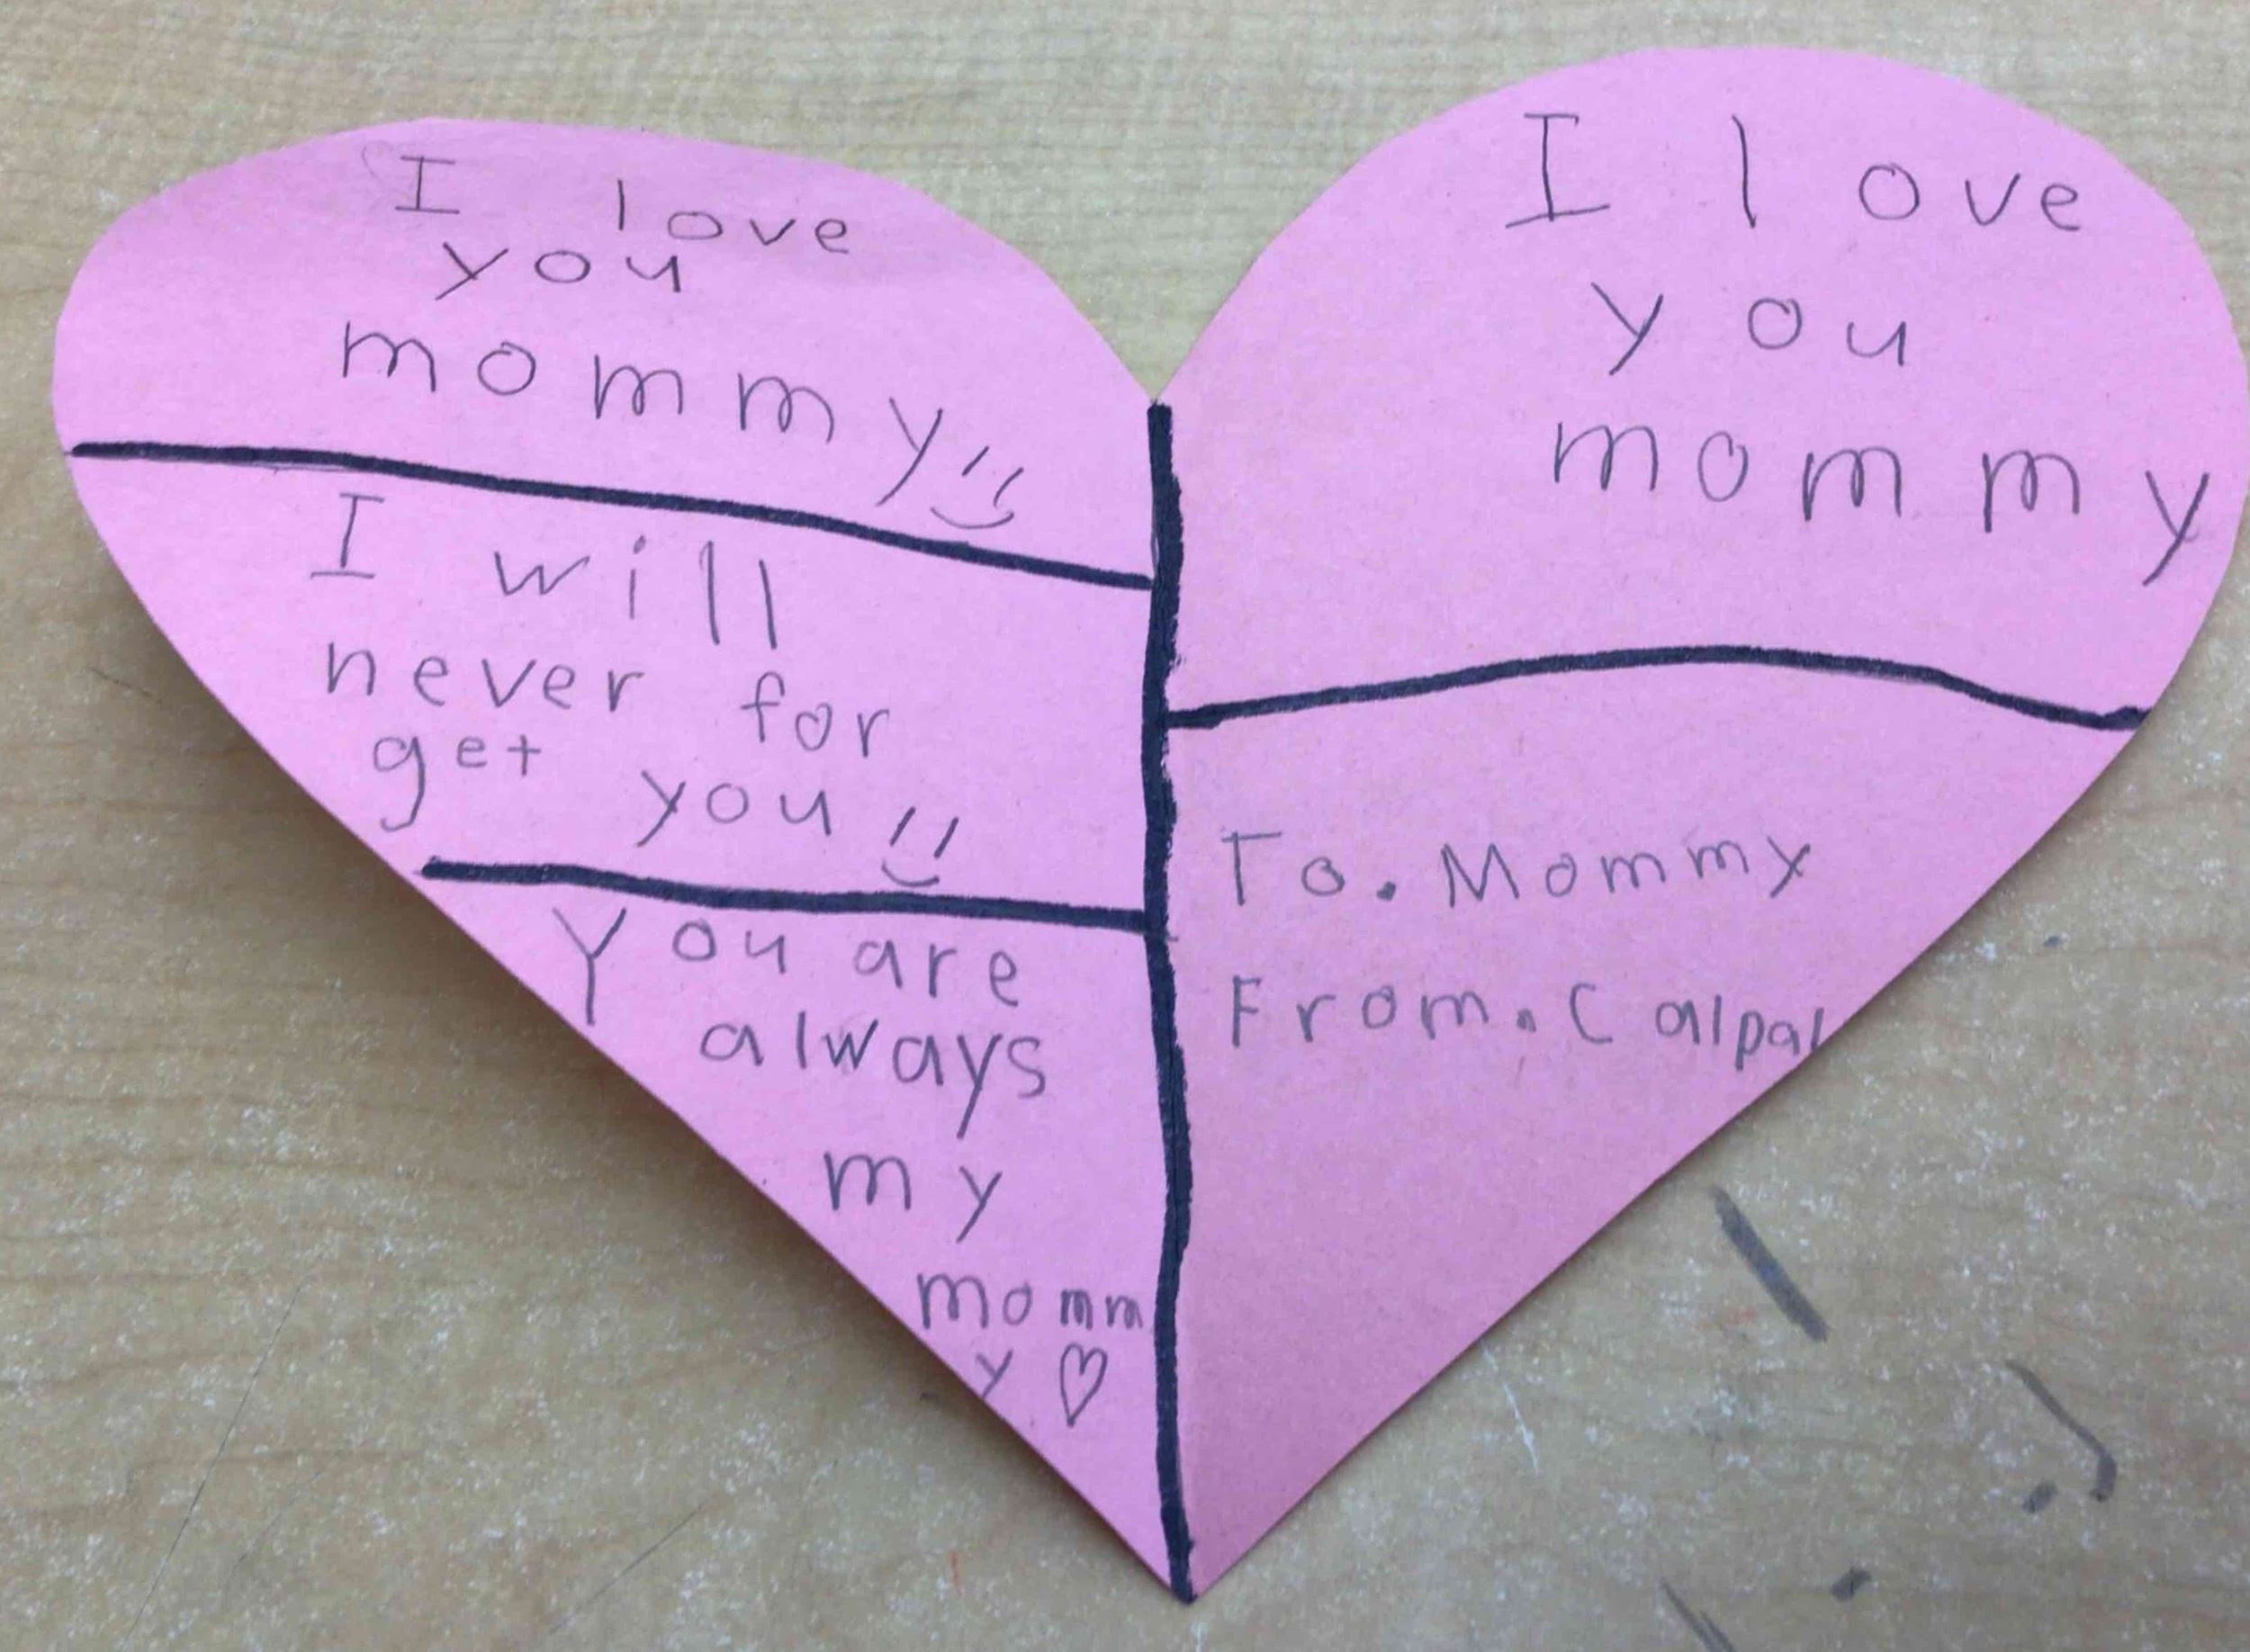 I love
you
mommy
I will
never for
get you
You are
always
my
momm
y
I love
you
mommy
To. Mommy
From. Calpal